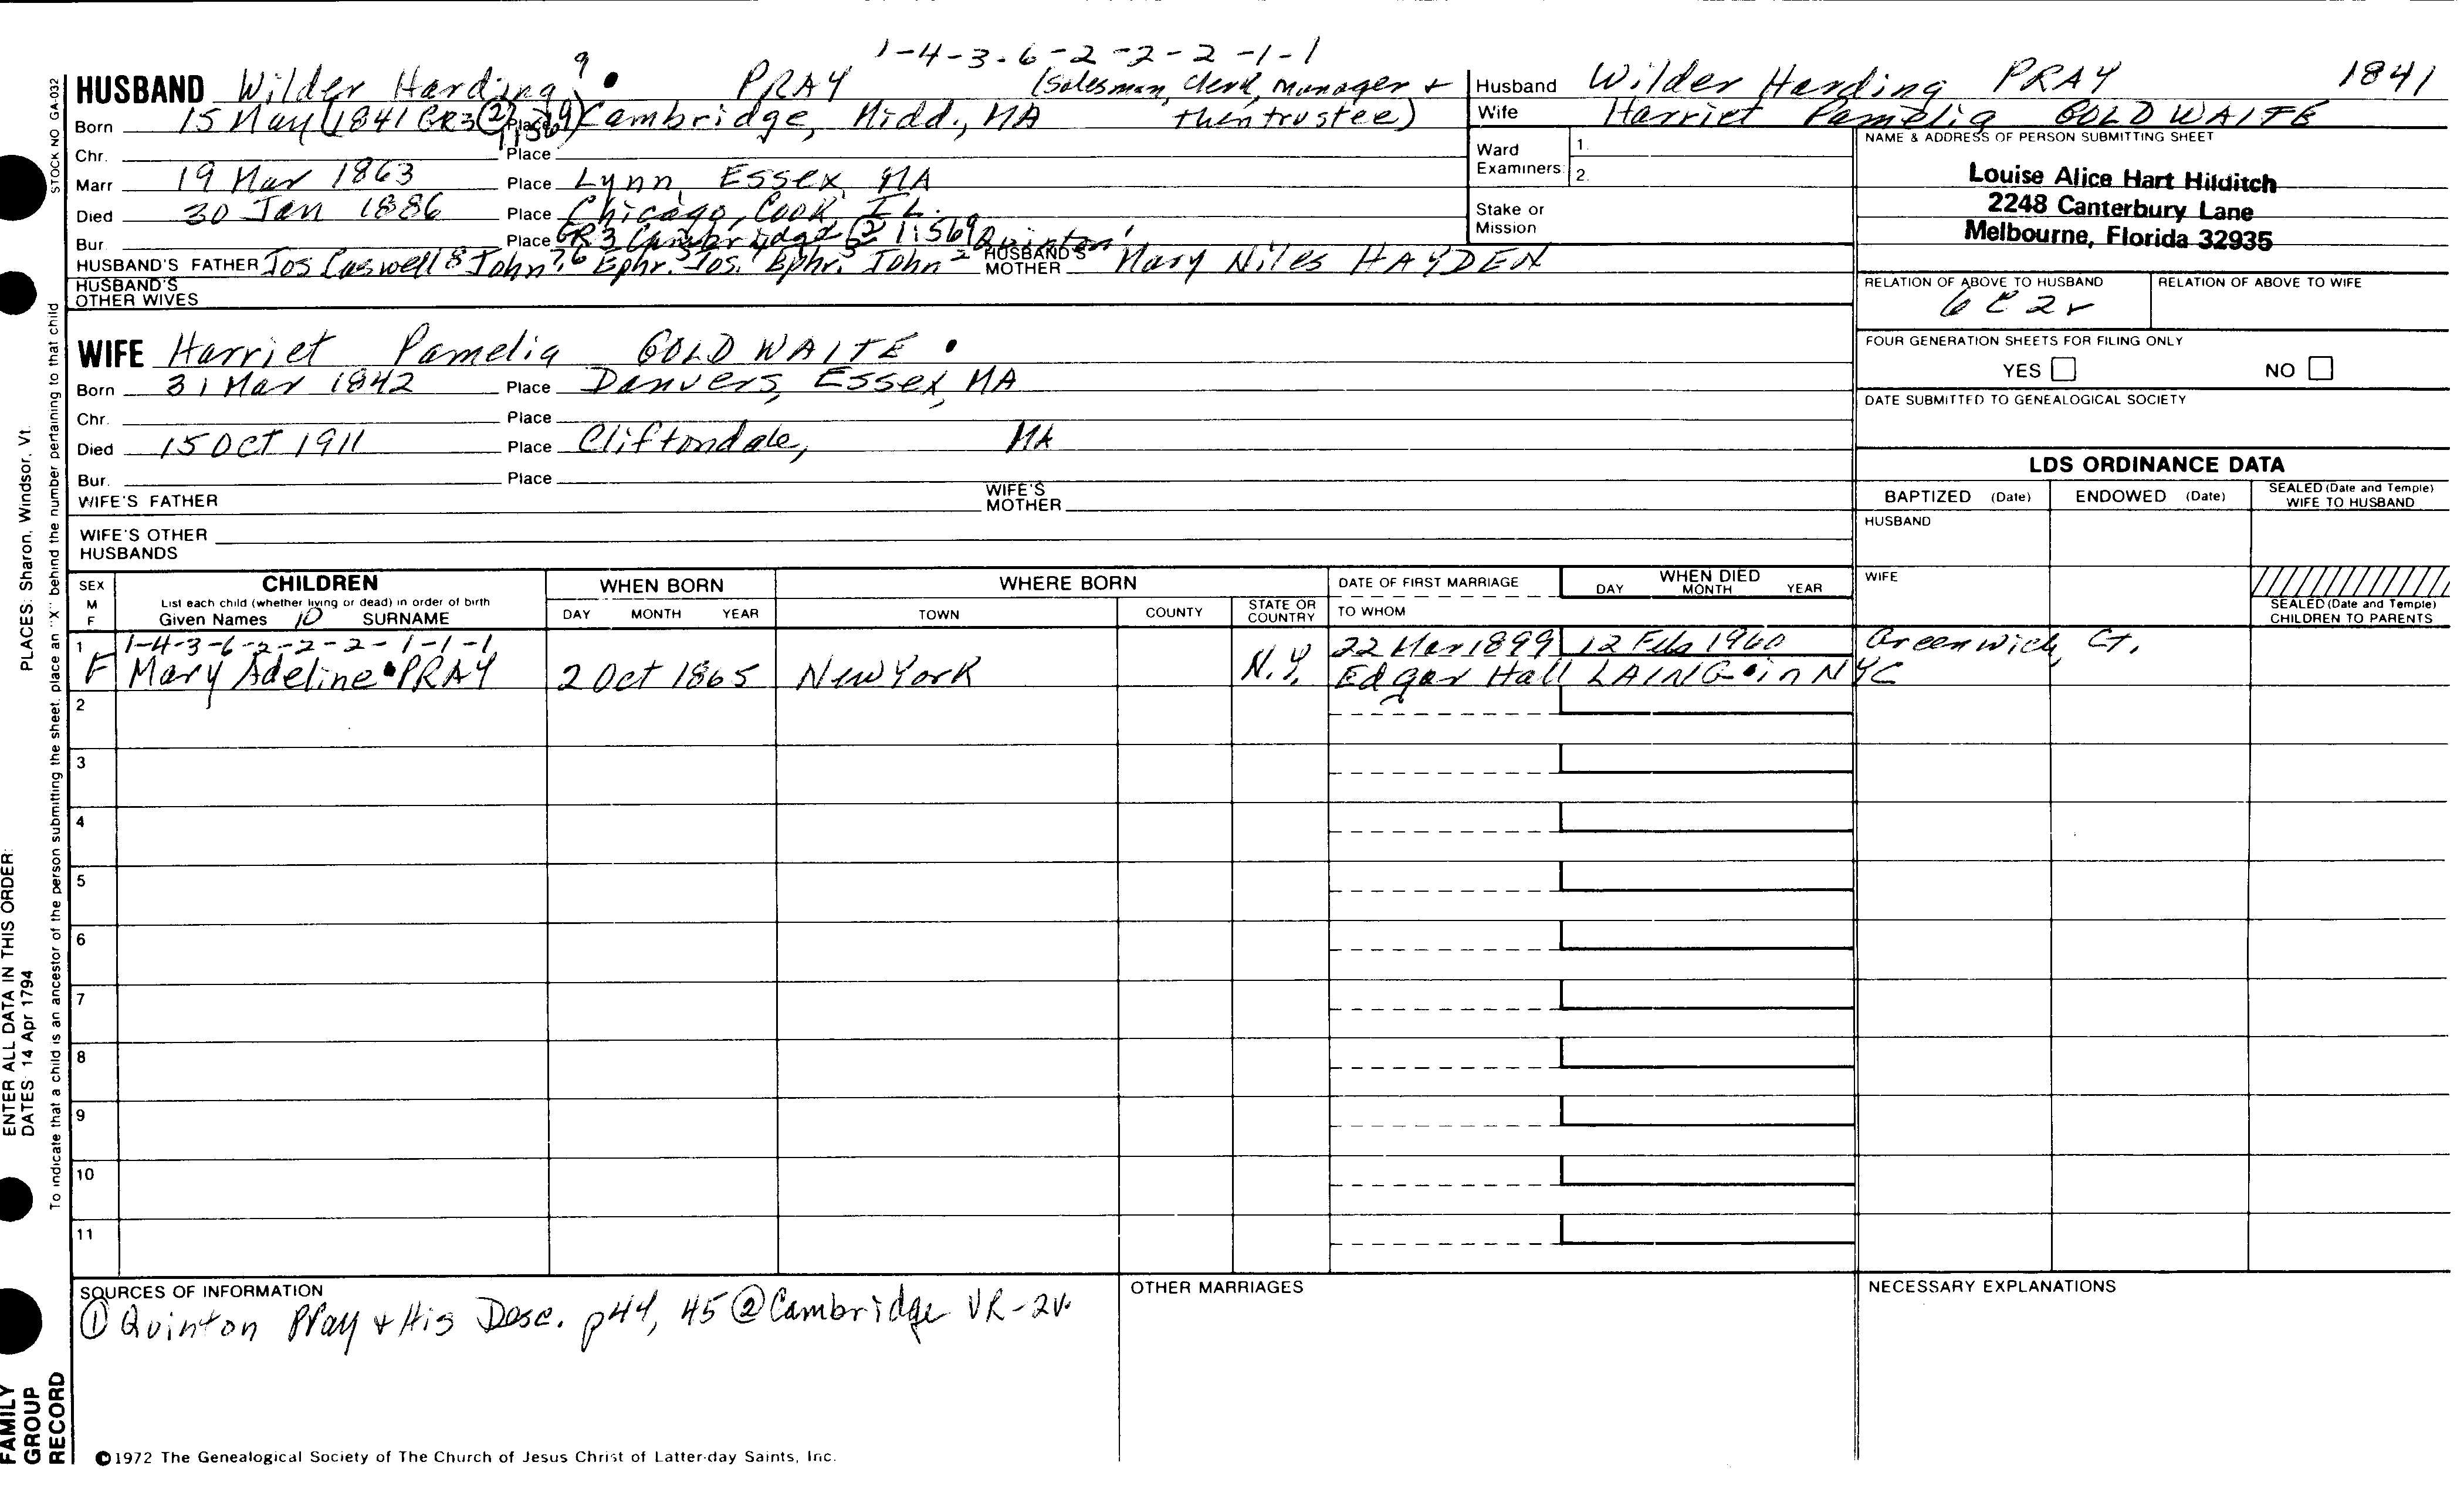 1-4-3-6-2-2-2-1-1
HUSBAND Wilder Harding 9 • PRAY (Salesman, Clerk, Manager +
Born 15 May 1841 GR3 (2) 1:569) Place Cambridge, Midd., MA then trustee)
Chr. Place
Marr 19 Mar 1863 Place Lynn, Essex, MA
Died 30 Jan 1886 Place Chicago, Cook, IL.
Bur. Place GR3 Cambridge (2) 1:569
HUSBAND'S FATHER Jos Caswell 8 John 7, 6 Ephr. 5 Jos. 4 Ephr. 3 John 2 Quinton 1 HUSBAND'S MOTHER Mary Niles HAYDEN
HUSBAND'S
OTHER WIVES
Husband Wilder Harding PRAY 1841
Wife Harriet Pamelia GOLDWAITE
Ward
Examiners: 1.
2.
Stake or
Mission
NAME & ADDRESS OF PERSON SUBMITTING SHEET
Louise Alice Hart Hilditch
2248 Canterbury Lane
Melbourne, Florida 32935
RELATION OF ABOVE TO HUSBAND RELATION OF ABOVE TO WIFE
6C2r
FOUR GENERATION SHEETS FOR FILING ONLY
YES NO
DATE SUBMITTED TO GENEALOGICAL SOCIETY
WIFE Harriet Pamelia GOLDWAITE •
Born 31 Mar 1842 Place Danvers, Essex, MA
Chr. Place
Died 15 Oct 1911 Place Cliftondale, MA
Bur. Place
WIFE'S FATHER WIFE'S MOTHER
WIFE'S OTHER
HUSBANDS
LDS ORDINANCE DATA
BAPTIZED (Date) ENDOWED (Date) SEALED (Date and Temple) WIFE TO HUSBAND
HUSBAND
WIFE
SEALED (Date and Temple) CHILDREN TO PARENTS
SEX M F CHILDREN WHEN BORN WHERE BORN DATE OF FIRST MARRIAGE WHEN DIED
List each child (whether living or dead) in order of birth DAY MONTH YEAR
Given Names 10 SURNAME DAY MONTH YEAR TOWN COUNTY STATE OR COUNTRY TO WHOM
1 1-4-3-6-2-2-2-1-1-1 22 Mar 1899 12 Feb 1960 Greenwich, Ct.
F Mary Adeline • PRAY 2 Oct 1865 New York N.Y. Edgar Hall LAING • in NYC
2
3
4
5
6
7
8
9
10
11
SOURCES OF INFORMATION
① Quinton Pray + His Desc. p44, 45 ② Cambridge VR-2v.
OTHER MARRIAGES
NECESSARY EXPLANATIONS
©1972 The Genealogical Society of The Church of Jesus Christ of Latter-day Saints, Inc.
STOCK NO GA-032
To indicate that a child is an ancestor of the person submitting the sheet, place an "X" behind the number pertaining to that child
PLACES: Sharon, Windsor, Vt.
ENTER ALL DATA IN THIS ORDER:
DATES: 14 Apr 1794
FAMILY
GROUP
RECORD